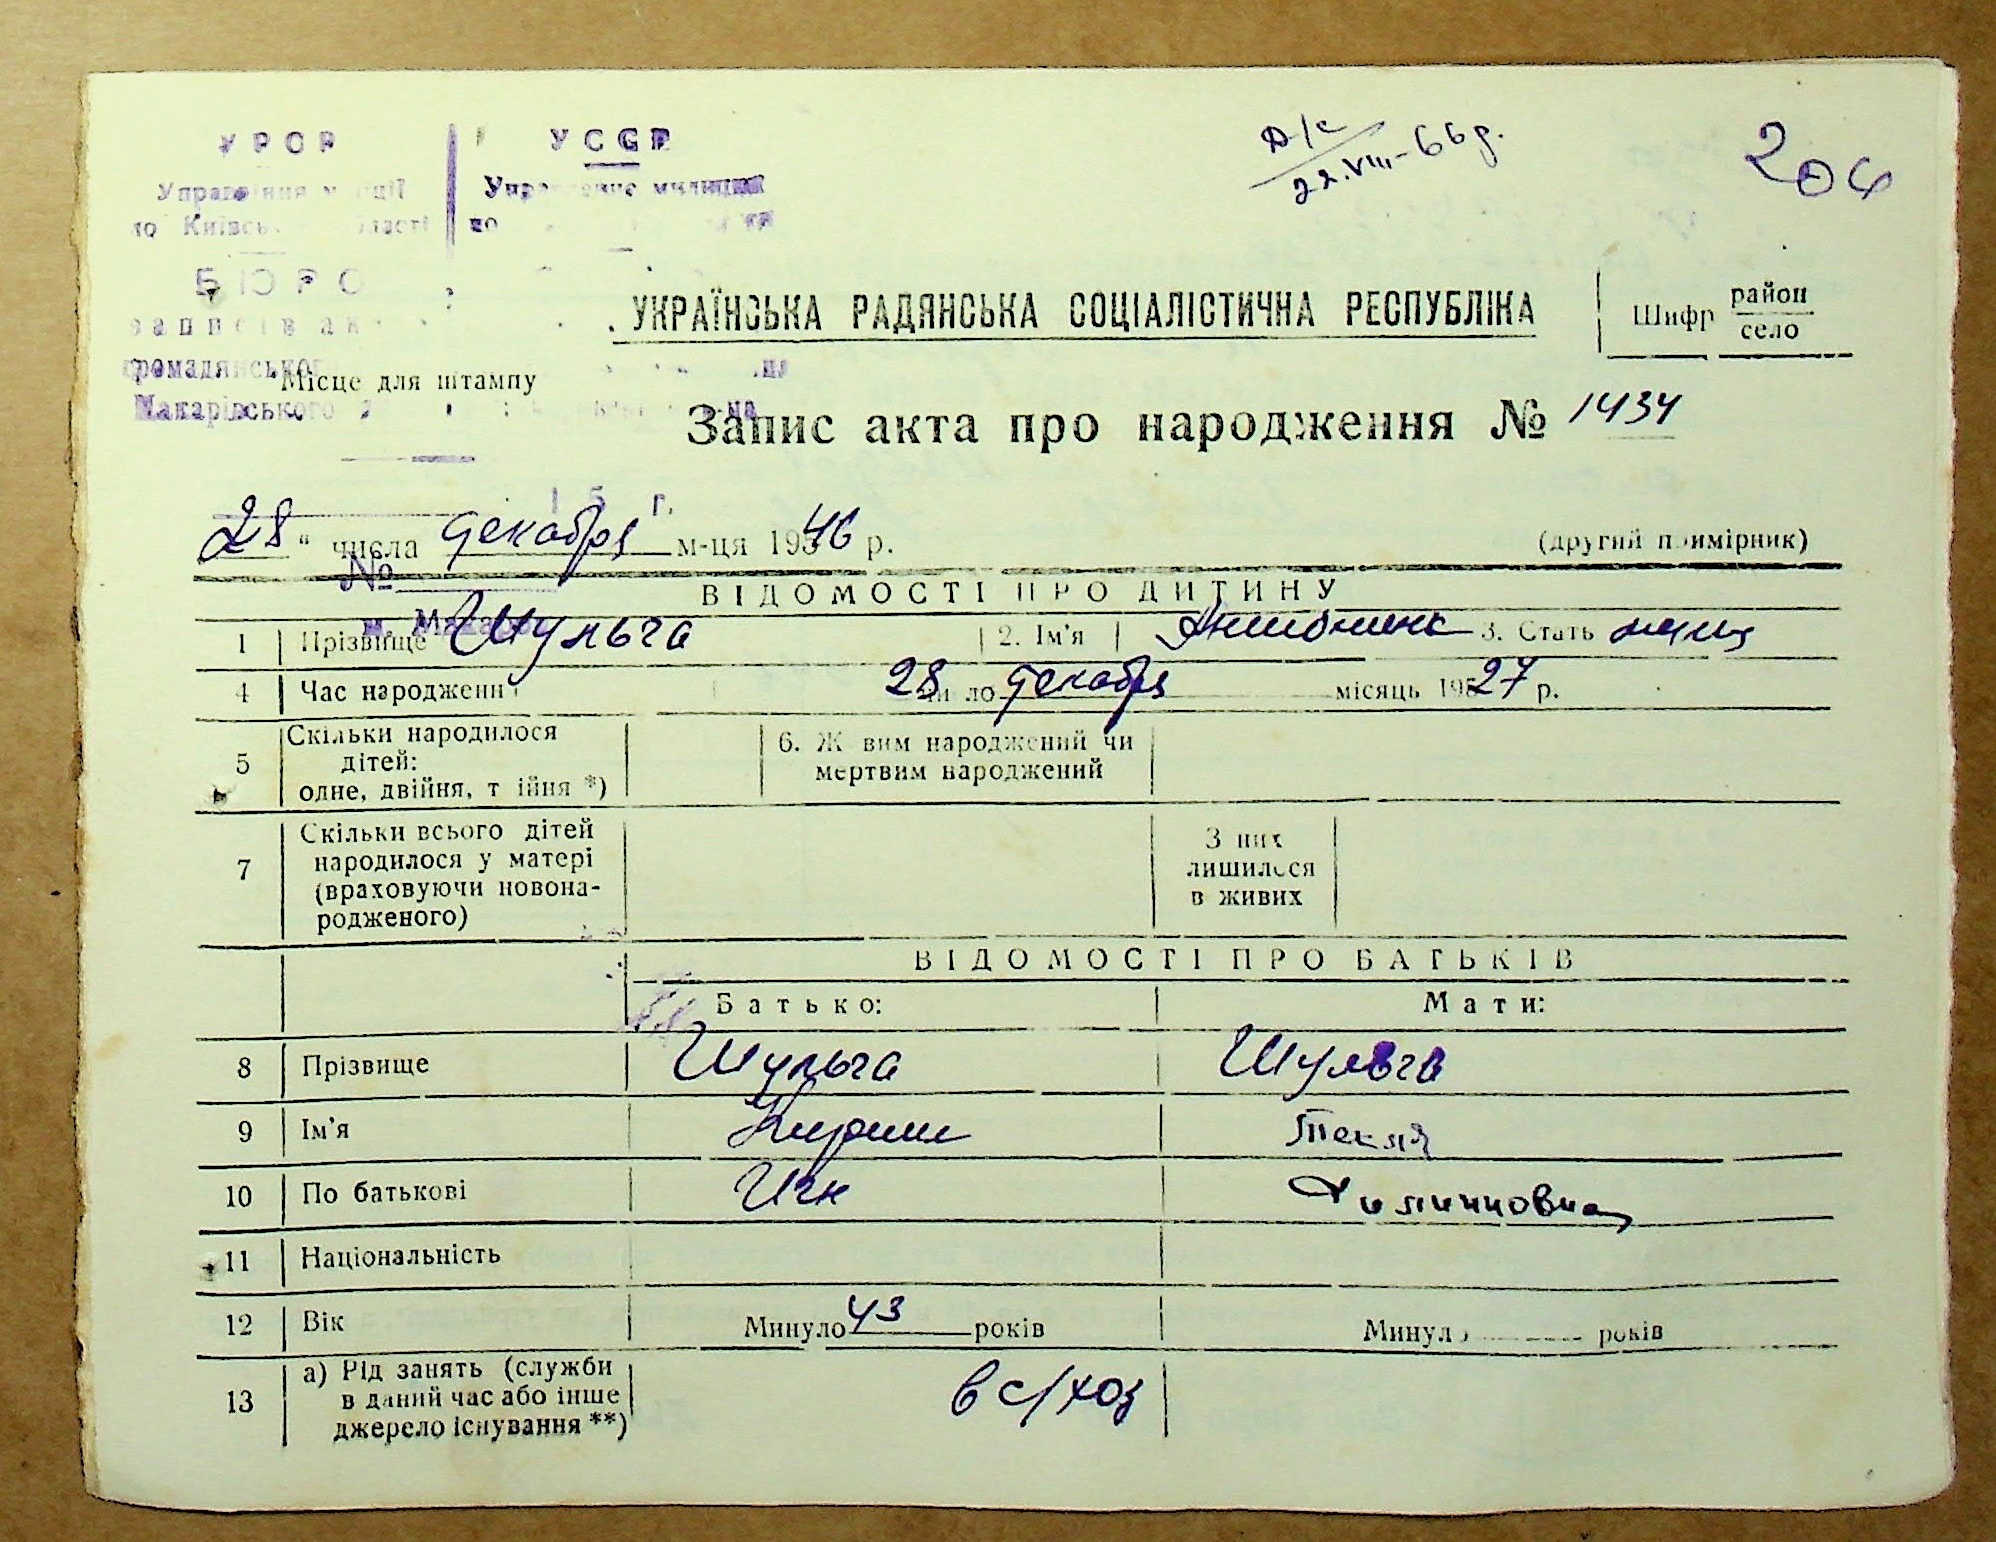 УРОР УССР
Управління міліції Управление милиции
по Київській області по
БЮРО
записів ак
громадянського
Макарівського
Д/с
22.VIII-66 г.
204
УКРАЇНСЬКА РАДЯНСЬКА СОЦІАЛІСТИЧНА РЕСПУБЛІКА
Шифр район
село
Місце для штампу
Запис акта про народження № 1434
15 г.
28 " числа декабря м-ця 1946 р.
(другий примірник)
№
м. Макарів
ВІДОМОСТІ ПРО ДИТИНУ
1 Прізвище Шульга 2. Ім'я Антонина 3. Стать
4 Час народження 28 число декабря місяць 1927 р.
5 Скільки народилося
дітей:
одне, двійня, трійня *)
6. Живим народжений чи
мертвим народжений
7 Скільки всього дітей
народилося у матері
(враховуючи новона-
родженого)
З них
лишилося
в живих
ВІДОМОСТІ ПРО БАТЬКІВ
Батько: Мати:
8 Прізвище Шульга Шульга
9 Ім'я Кирилл Текля
10 По батькові Игн Филипповна
11 Національність
12 Вік Минуло 43 років Минуло років
13 а) Рід занять (служби
в даний час або інше
джерело існування **)
в с/хоз